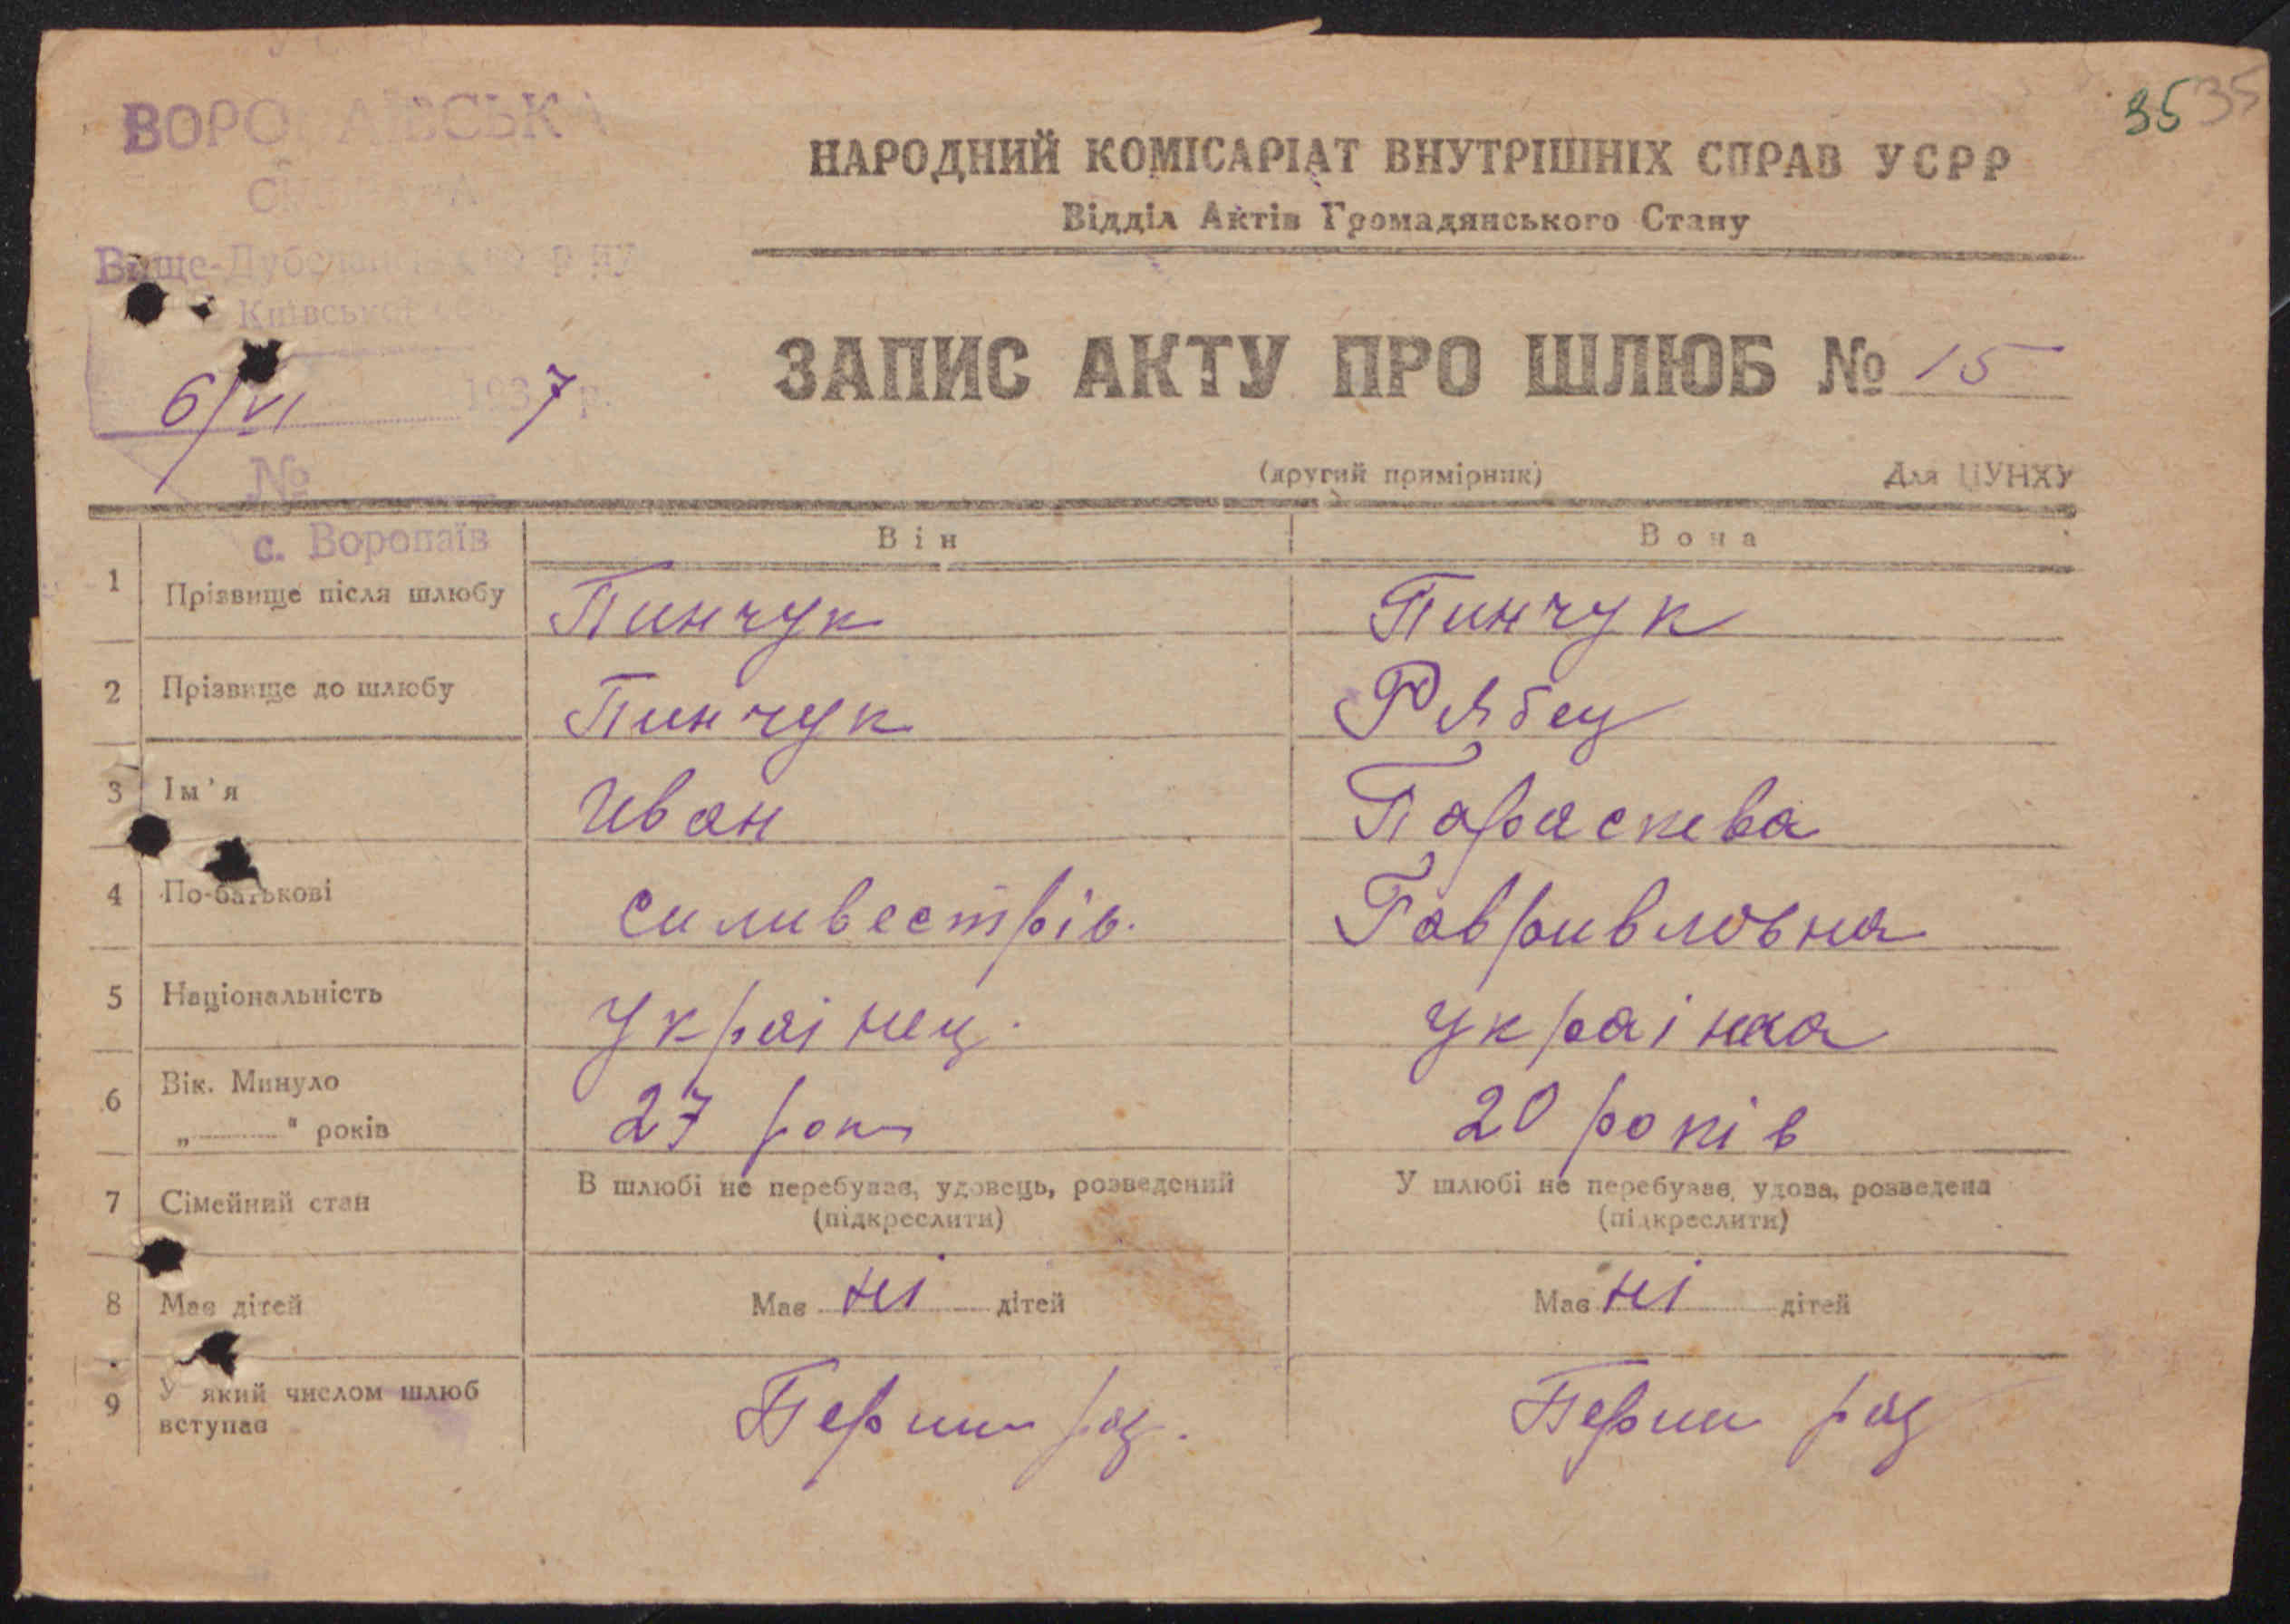 35 35
ВОРОПАЇВСЬКА
НАРОДНИЙ КОМІСАРІАТ ВНУТРІШНІХ СПРАВ УСРР
Відділ Актів Громадянського Стану
Вище-Дубечанського р-ну
Київської обл.
6/VI 1937 р.
ЗАПИС АКТУ ПРО ШЛЮБ № 15
№
(другий примірник) Для ЦУНХУ
с. Воропаїв
Він Вона
1 Прізвище після шлюбу Пинчук Пинчук
2 Прізвище до шлюбу Пинчук Рябец
3 Ім'я Иван Параскева
4 По-батькові Силивестрів. Гавривловна
5 Національність Украінец. украінка
6 Вік. Минуло
„ " років 27 рок 20 років
7 Сімейний стан В шлюбі не перебуває, удовець, розведений У шлюбі не перебуває, удова, розведена
(підкреслити) (підкреслити)
8 Має дітей Має ні дітей Має ні дітей
9 У який числом шлюб
вступає Перши раз. Перши раз